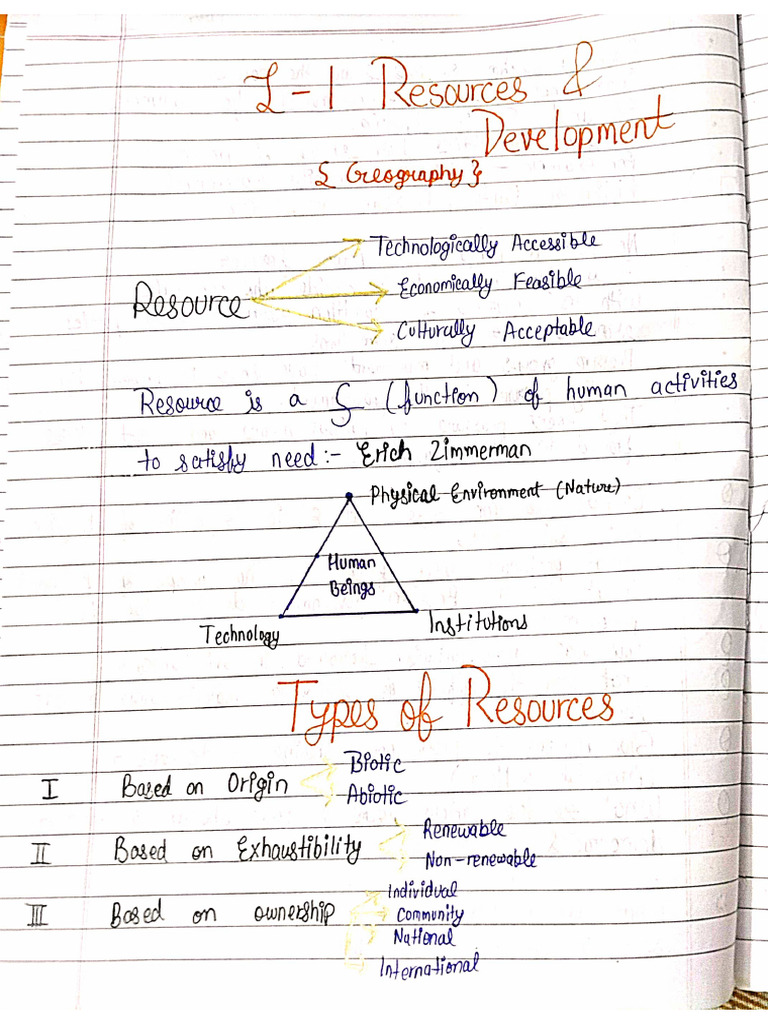 L-1 Resources &
Development
{ Geography }
Technologically Accessible
Economically Feasible
Resource
Culturally Acceptable
Resource is a ʃ (function) of human activities
to satisfy need:- Erich Zimmerman
Physical Environment (Nature)
Human
Beings
Technology
Institutions
Types of Resources
I Based on Origin
Biotic
Abiotic
II Based on Exhaustibility
Renewable
Non-renewable
III Based on ownership
Individual
Community
National
International